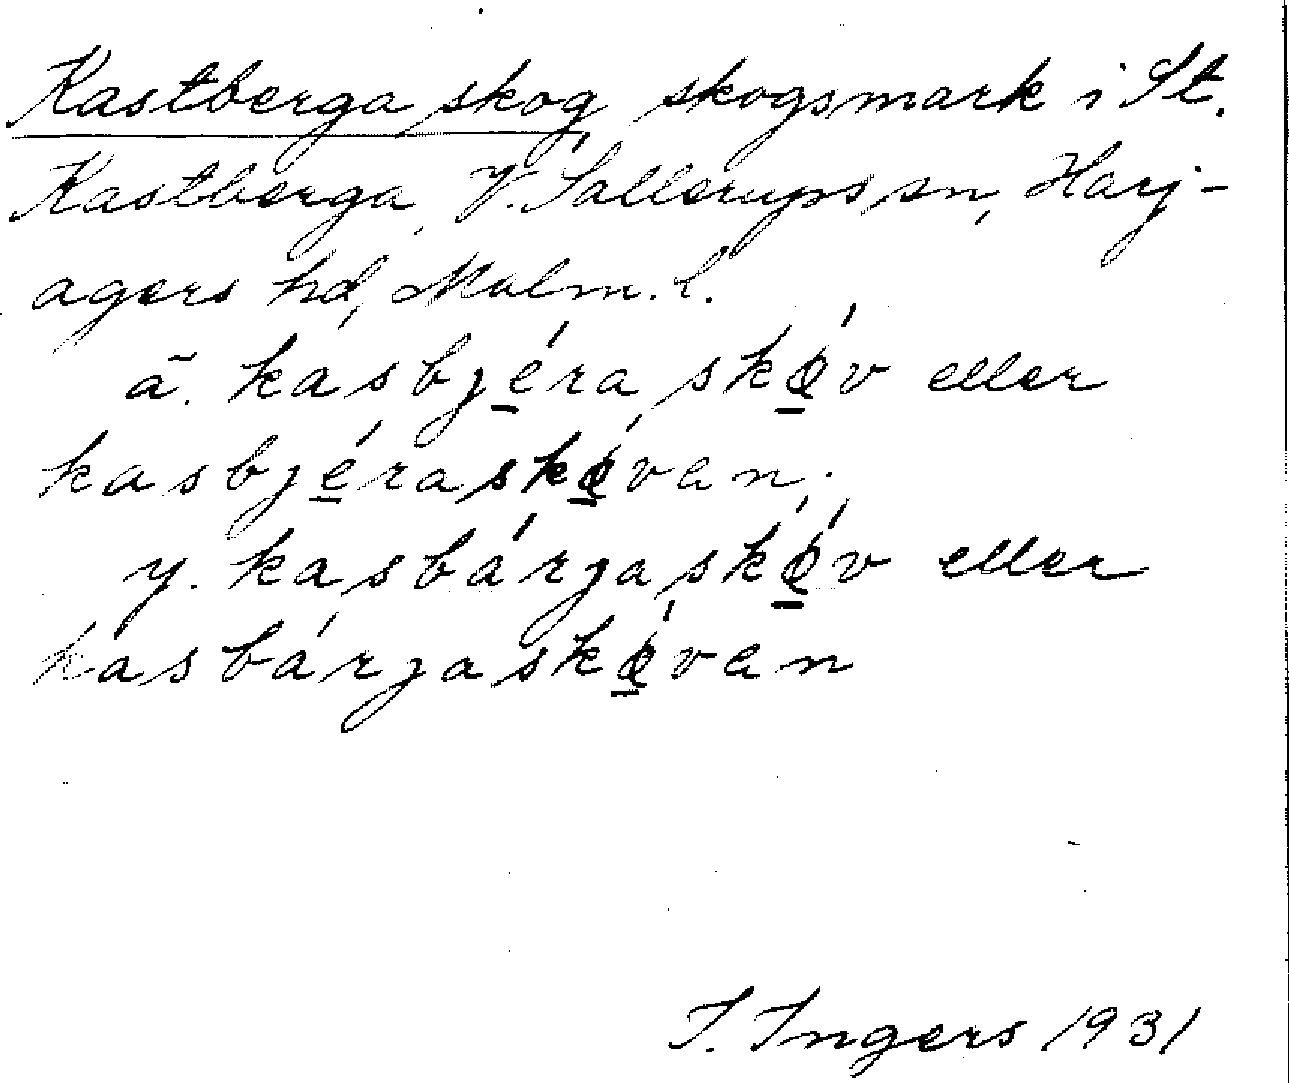 Kastberga skog, skogsmark i St.
Kastberga, V. Sallerups sn, Harj-
agers hd, Malm. l.
ä. kasbjéra skǿv eller
kasbjéraskǿvan;
y. kasbárjaskǿv eller
kasbárjaskǿvan
I. Ingers 1931